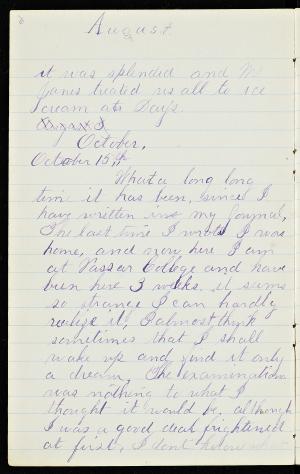 August.
it was splended and Mr
Jones treated us all to ice
cream at Days.
August
October,
October 15th
What a long long
time it has been, since I
have written in my journal,
The last time I wrote I was
home, and now here I am
at Vassar College and have
been here 3 weeks. it seems
so strange I can hardly
realize it, I almost think
sometimes that I shall
wake up and find it only
a dream, The examination
was nothing to what I
thought it would be, although
I was a good deal frightened
at first, I don't know